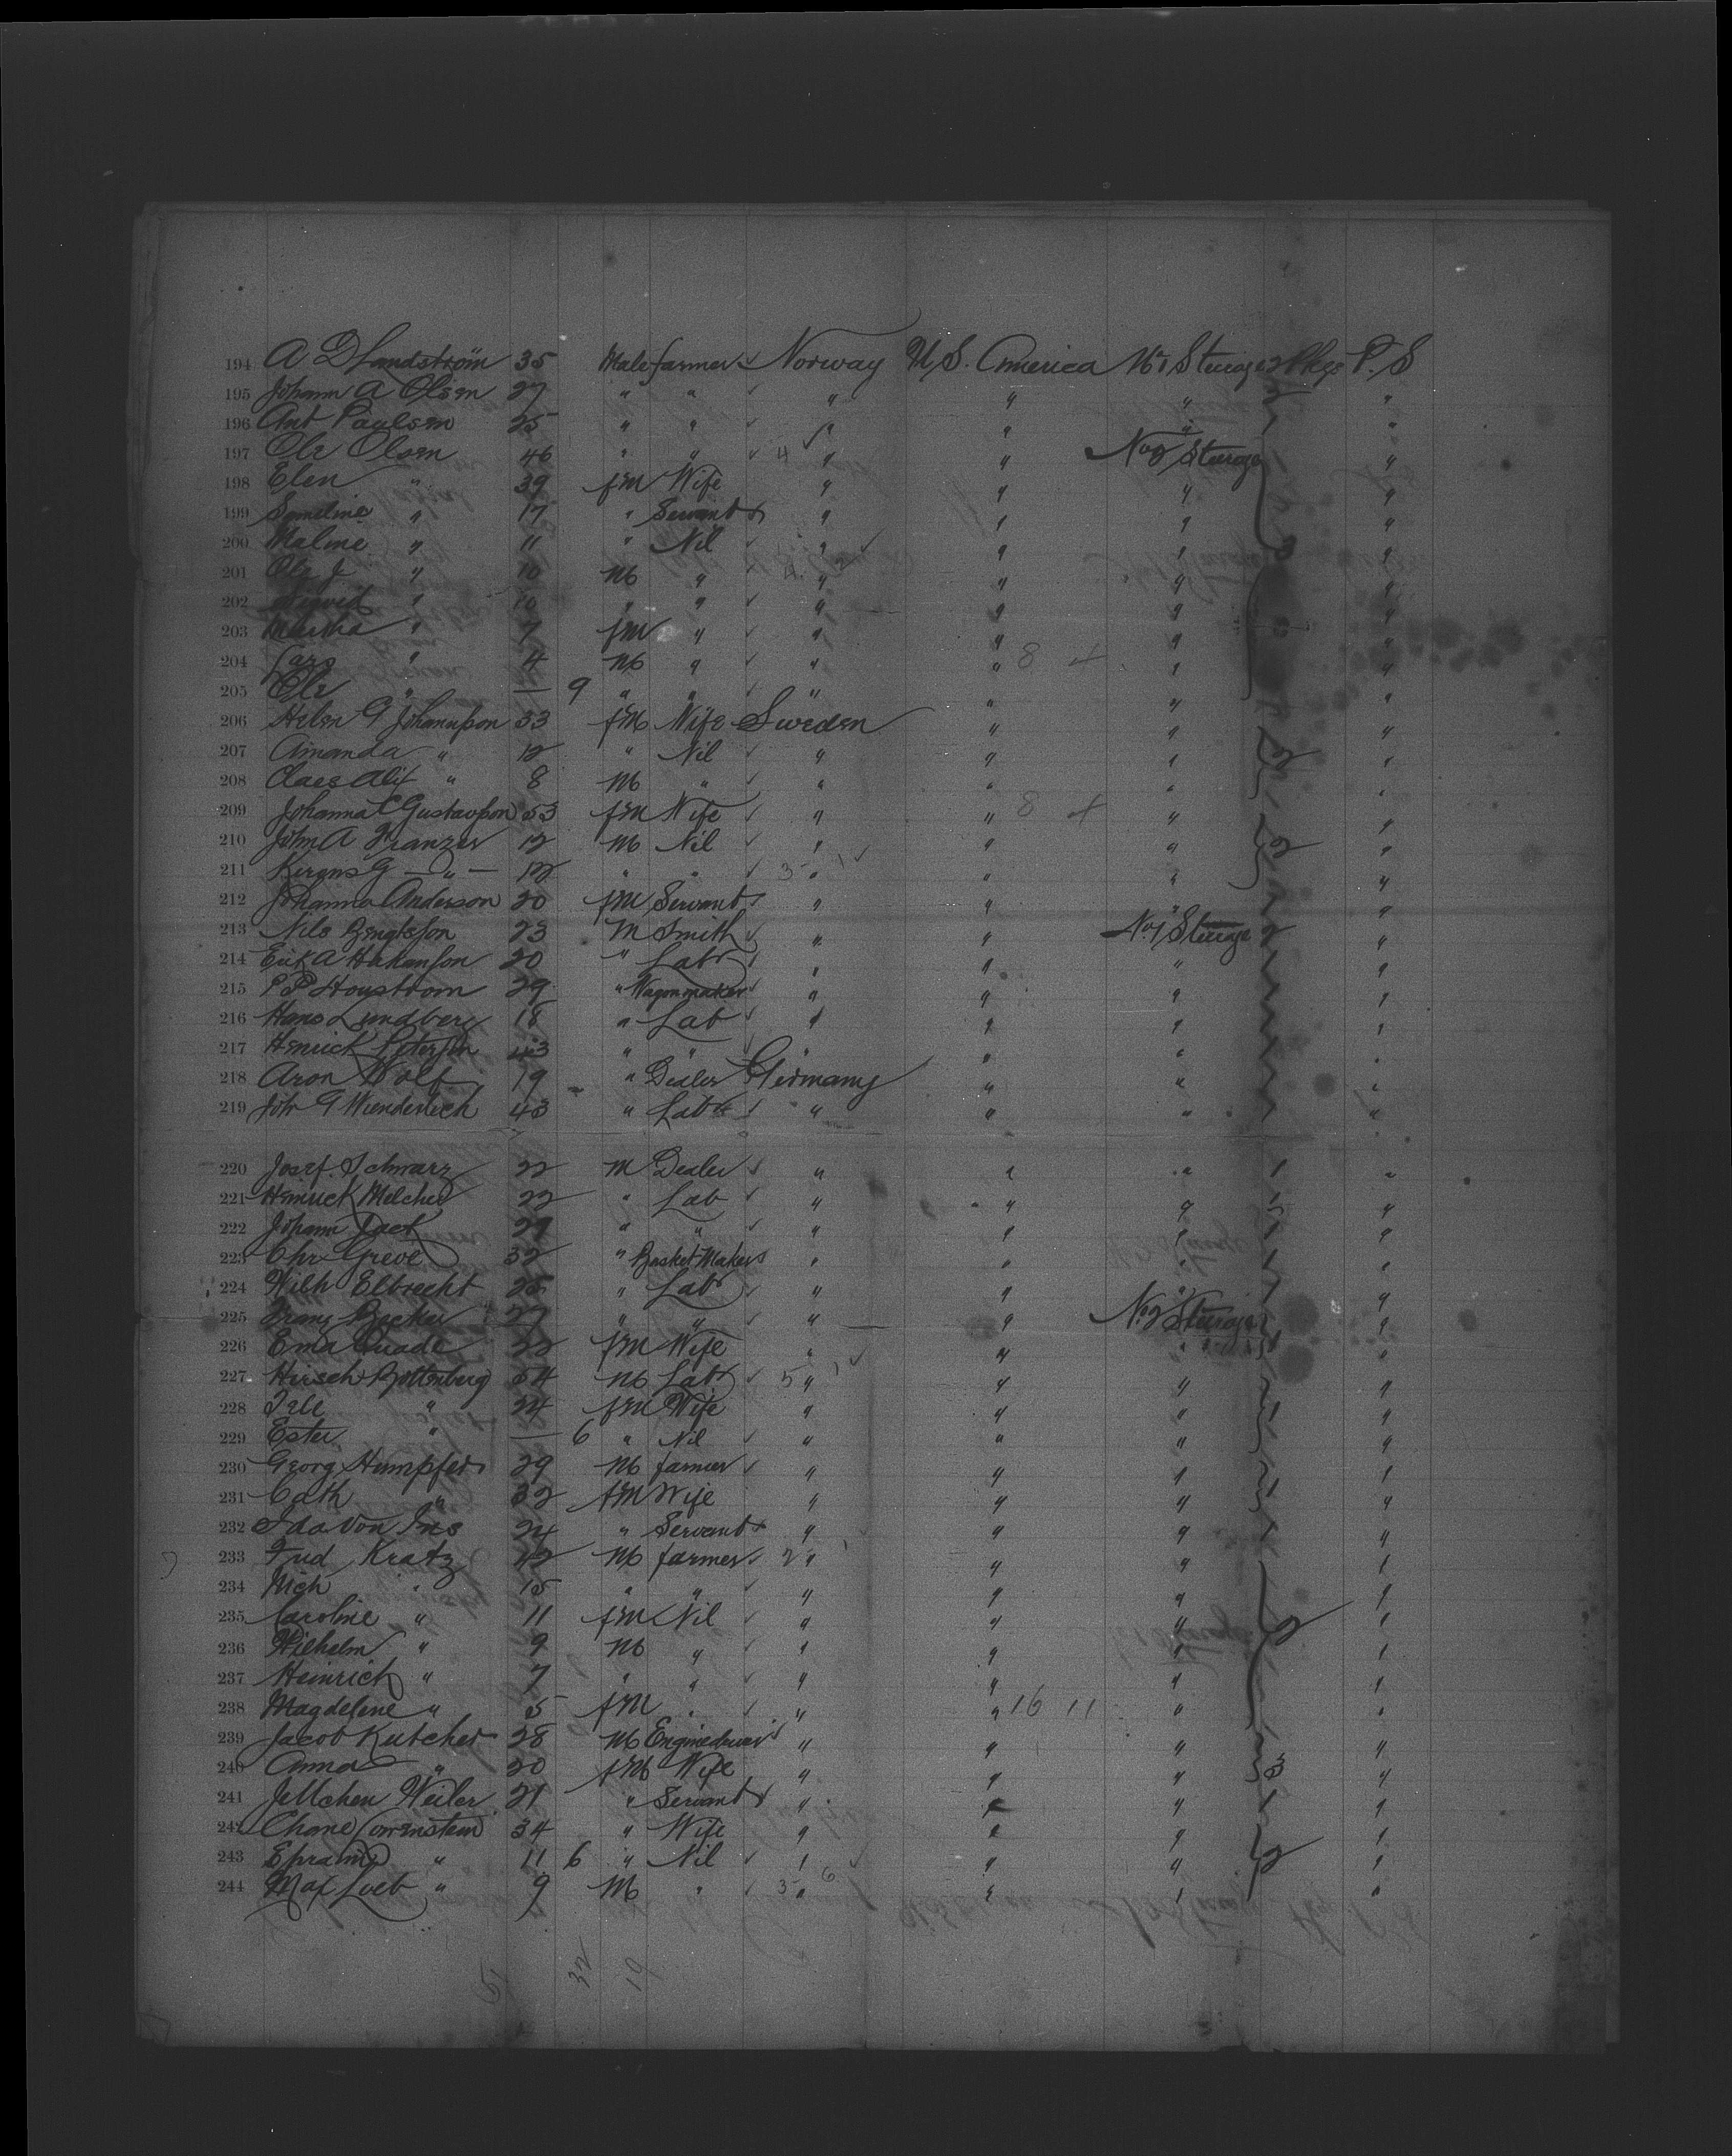 194 A D Landström 35 Male farmer Norway U.S. America No 1 Steerage 2 Pkgs P. S
195 Johann A Olsen 27 " " " " " 2 "
196 Ant Paulsen 25 " " " " " 1 "
197 Ole Olsen 46 " " 4 " " No 2 Steerage "
198 Elen " 39 fm Wife " " " "
199 " 17 " Servant " " " "
200 Maline " 11 " Nil " " " 3 "
201 Ole J " 10 M " " " " "
202 " 10 " " " " " "
203 Martha " 7 fm " " " " "
204 Lars " 4 M " " " 8 4 " "
205 Ole " — 9 " " " " " "
206 Helen G Johannsson 33 fm Wife Sweden " " "
207 Amanda " 12 " Nil " " " 2 "
208 Claes Alif " 8 M " " " " "
209 Johanna C Gustavsson 53 fm Wife " " 8 4 " "
210 John A Franzer 12 M Nil " " " 2 "
211 G — " — 12 " " 3 " " " "
212 Johanna Anderson 20 fm Servant " " " "
213 Nils Bengtsson 23 M Smith " " No 1 Steerage 2 "
214 Erik A Hakanson 20 " Labr " " " 1 "
215 P P Houstrom 29 " Wagonmaker " " " 1 "
216 Hans Lundberg 18 " Lab " " " 1 "
217 Henrick Peterson 43 " " " " " 1 "
218 Aron Wolf 19 " Dealer Germany " " 1 "
219 Joh G Wienderlech 43 " Labr " " " 1 "
220 Josef Schwarz 22 M Dealer " " " 1 "
221 Heinrick Melcher 22 " Lab " " " "
222 Johann Jack 27 " " " " " 1 "
223 Chr Greve 32 " Basket Maker " " " 1 "
224 Wilh Elbrecht 25 " Labr " " " 1 "
225 Franz Becker 27 " " " " No 2 Steerage 1 "
226 Ema Quade 22 fm Wife " " " "
227 Hirsch Rottenberg 54 M Labr 5 " " " "
228 " 24 fm Wife " " " 1 "
229 Ester " — 6 " Nil " " " "
230 Georg Humpfer 29 M farmer " " " "
231 Cath " 32 fm Wife " " " "
232 Ida Von Ins 24 " Servant " " " 1 "
233 Fred Kratz 42 M farmer 2 " " " "
234 Mich " 15 " " " " " "
235 Caroline " 11 fm Nil " " " 2 "
236 Wilhelm " 9 M " " " " "
237 Heinrich " 7 " " " " " "
238 Magdelene " 5 fm " " " 16 11 " "
239 Jacob Kutcher 28 M Enginedriver " " " "
240 Anna " 20 fm Wife " " " 3 "
241 Jettchen Weiler 21 " Servant " " " 1 "
242 Chane Lowenstein 34 " Wife " " " "
243 Ephraim " 11 6 " Nil " " " 2 "
244 Max Loeb " 9 M " 3 " 6 " " "
51 32 19